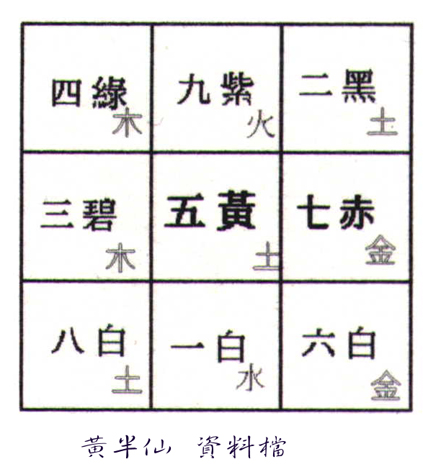 四綠 九紫 二黑
木 火 土
三碧 五黃 七赤
木 土 金
八白 一白 六白
土 水 金
黃半仙 資料檔